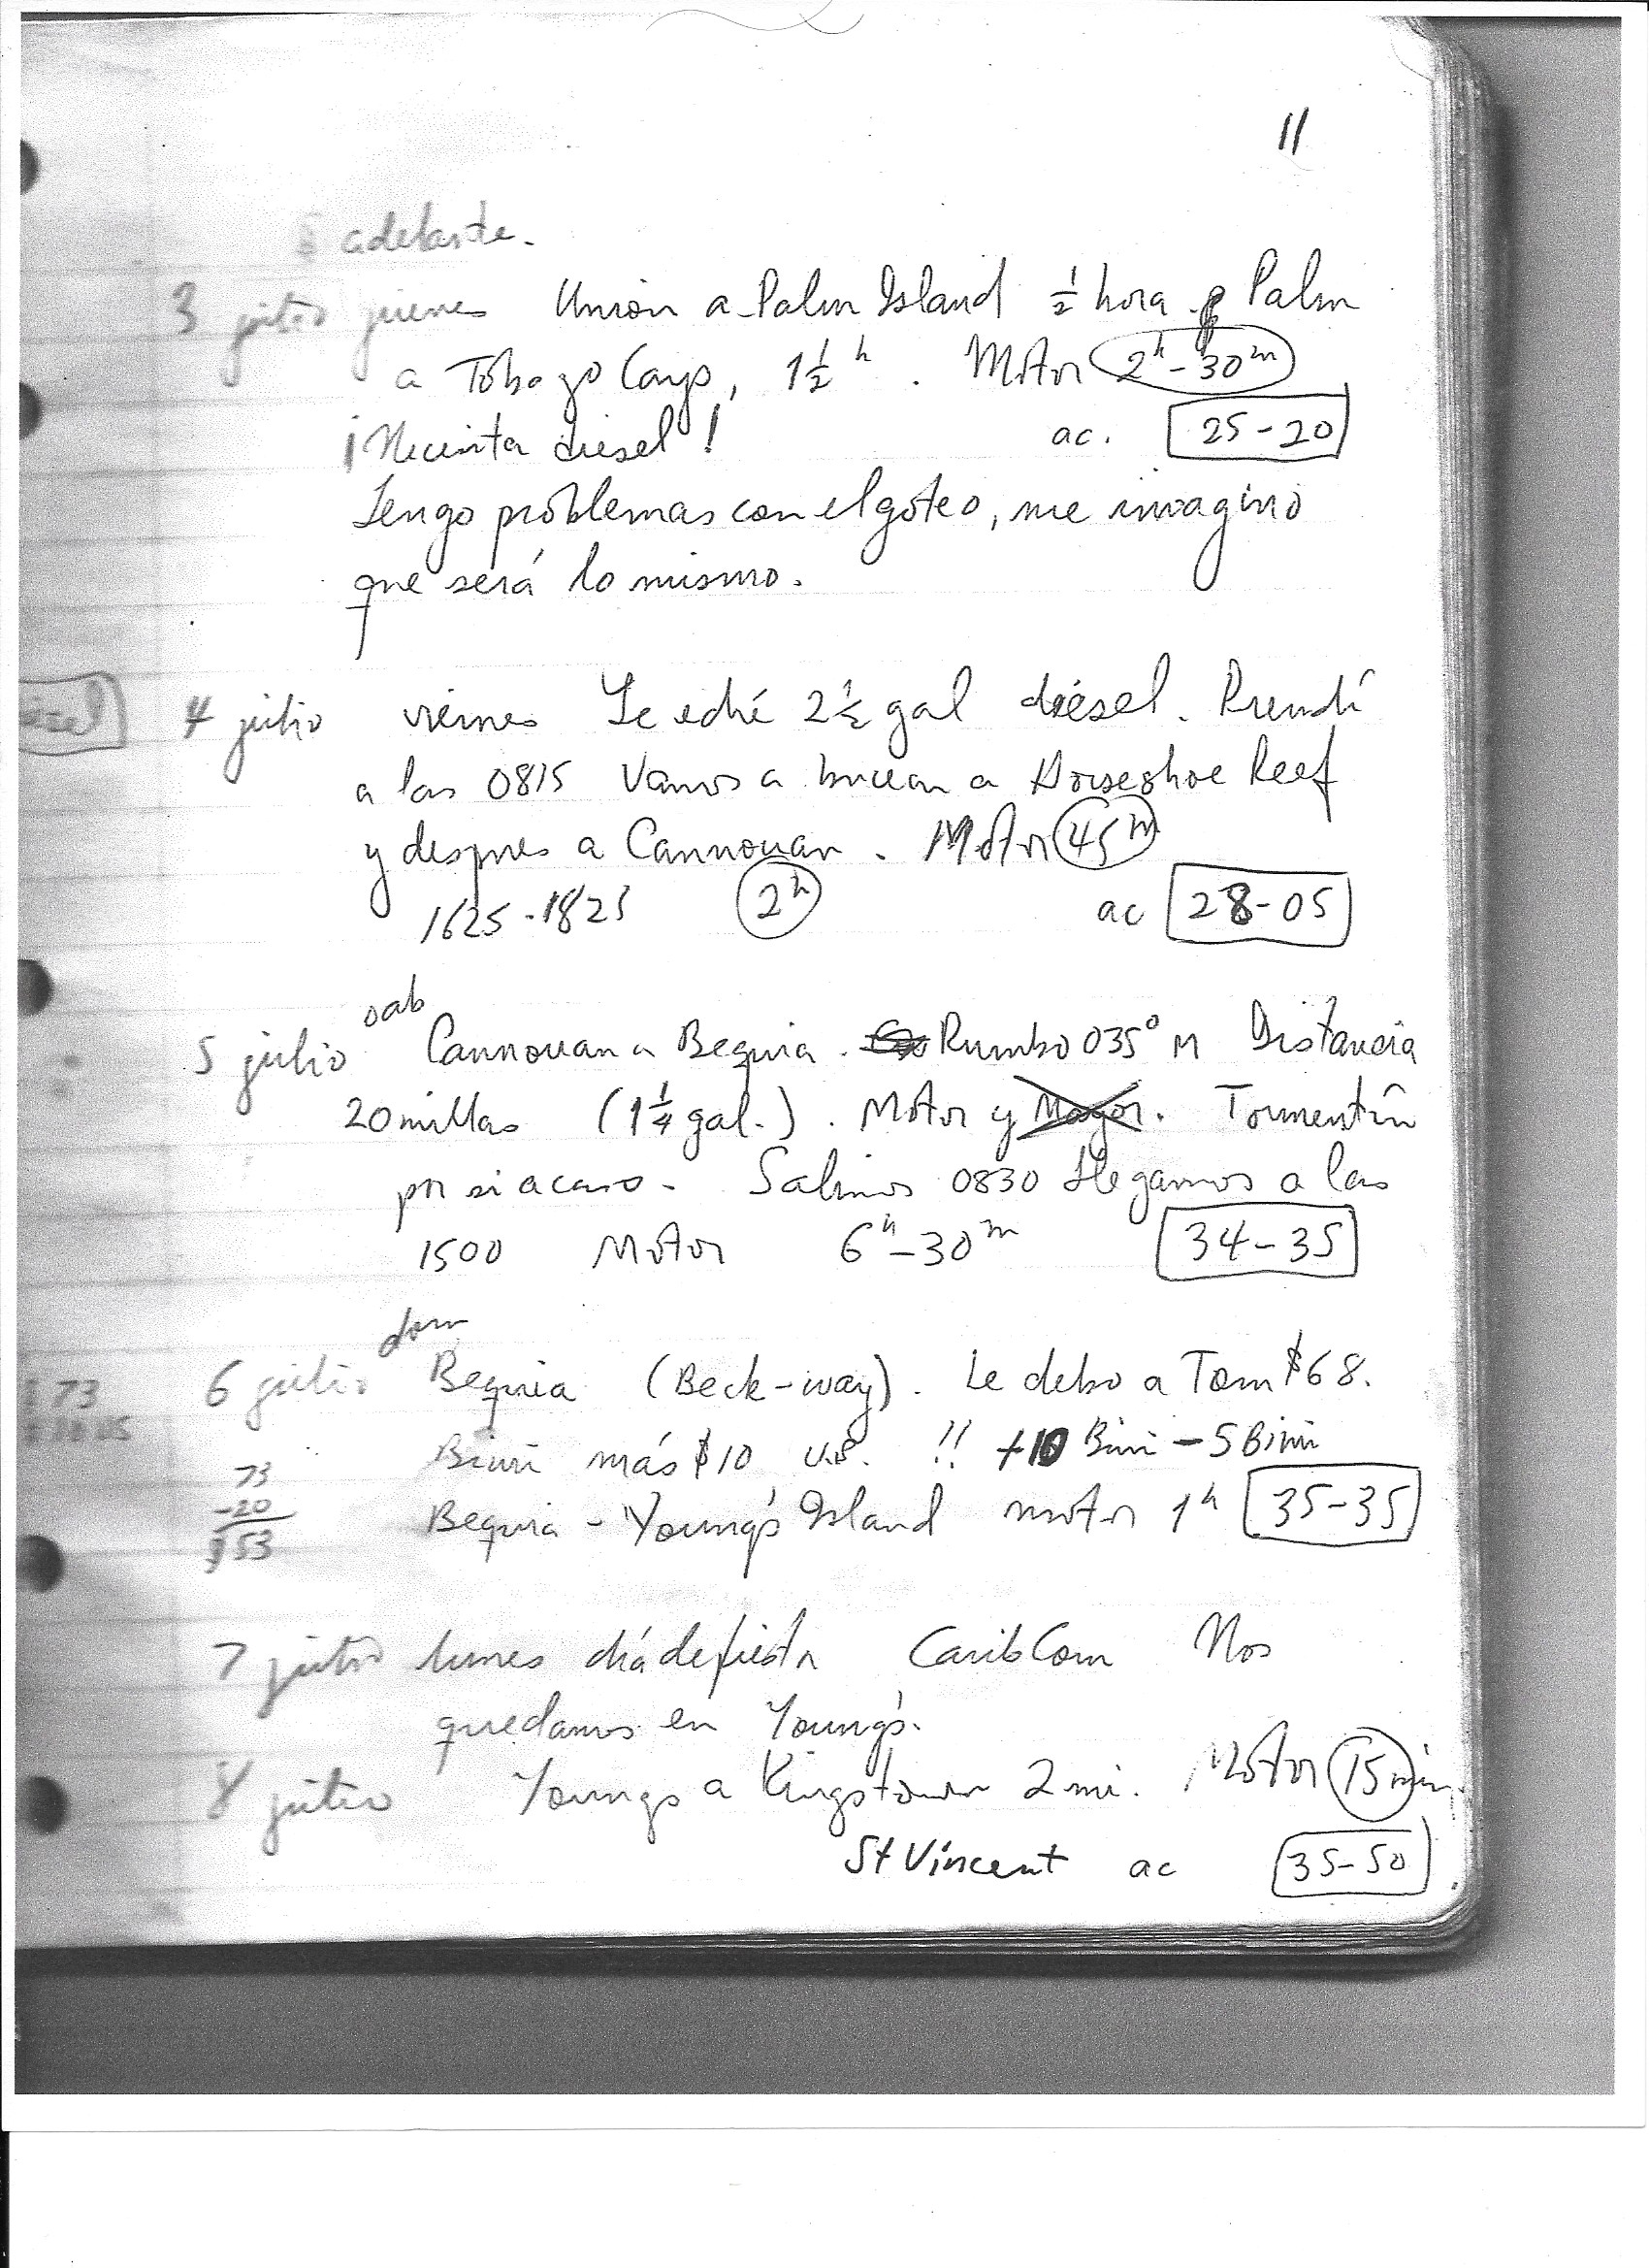 11
adelante.
3 julio jueves Unión a Palm Island ½ hora. Palm
a Tobago Cays, 1½ h. Motor 2h-30m
¡Necesita diesel! ac. 25-20
Tengo problemas con el goteo, me imagino
que será lo mismo.
4 julio viernes Le eché 2½ gal diésel. Prendí
a las 0815 Vamos a bucear a Horseshoe Reef
y despues a Cannouan. Motor 45m
1625-1825 2h ac 28-05
sab
5 julio Cannouan a Bequia. Rumbo 035° M Distancia
20 millas (1¼ gal.). Motor y Mayor. Tormentín
por si acaso. Salimos 0830 Llegamos a las
1500 Motor 6h-30m 34-35
dom
73 6 julio Bequia (Beck-way). Le debo a Tom $68.
Biwi más $10 U.S. !! +10 Biwi - 5 Biwi
73
-20 Bequia - Young's Island motor 1h 35-35
$53
7 julio lunes día de fiesta CaribCom Nos
quedamos en Young's.
8 julio Youngs a Kingstown 2 mi. Motor 15 min.
St Vincent ac 35-50